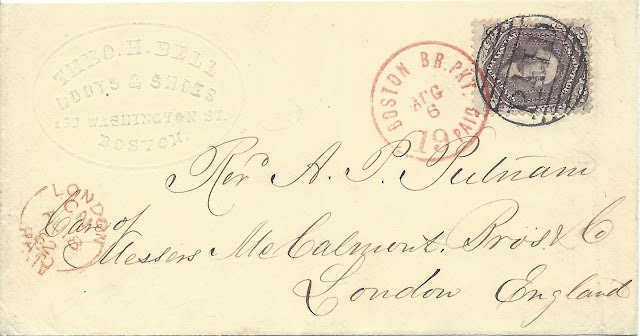 THEO. H. BELL
BOOTS & SHOES
155 WASHINGTON ST.
BOSTON.
BOSTON BR. PKT.
AUG
6
19 PAID
Revd A. P. Putnam
Care of
Messers McCalmont. Bros & Co
London England
LONDON
PAID